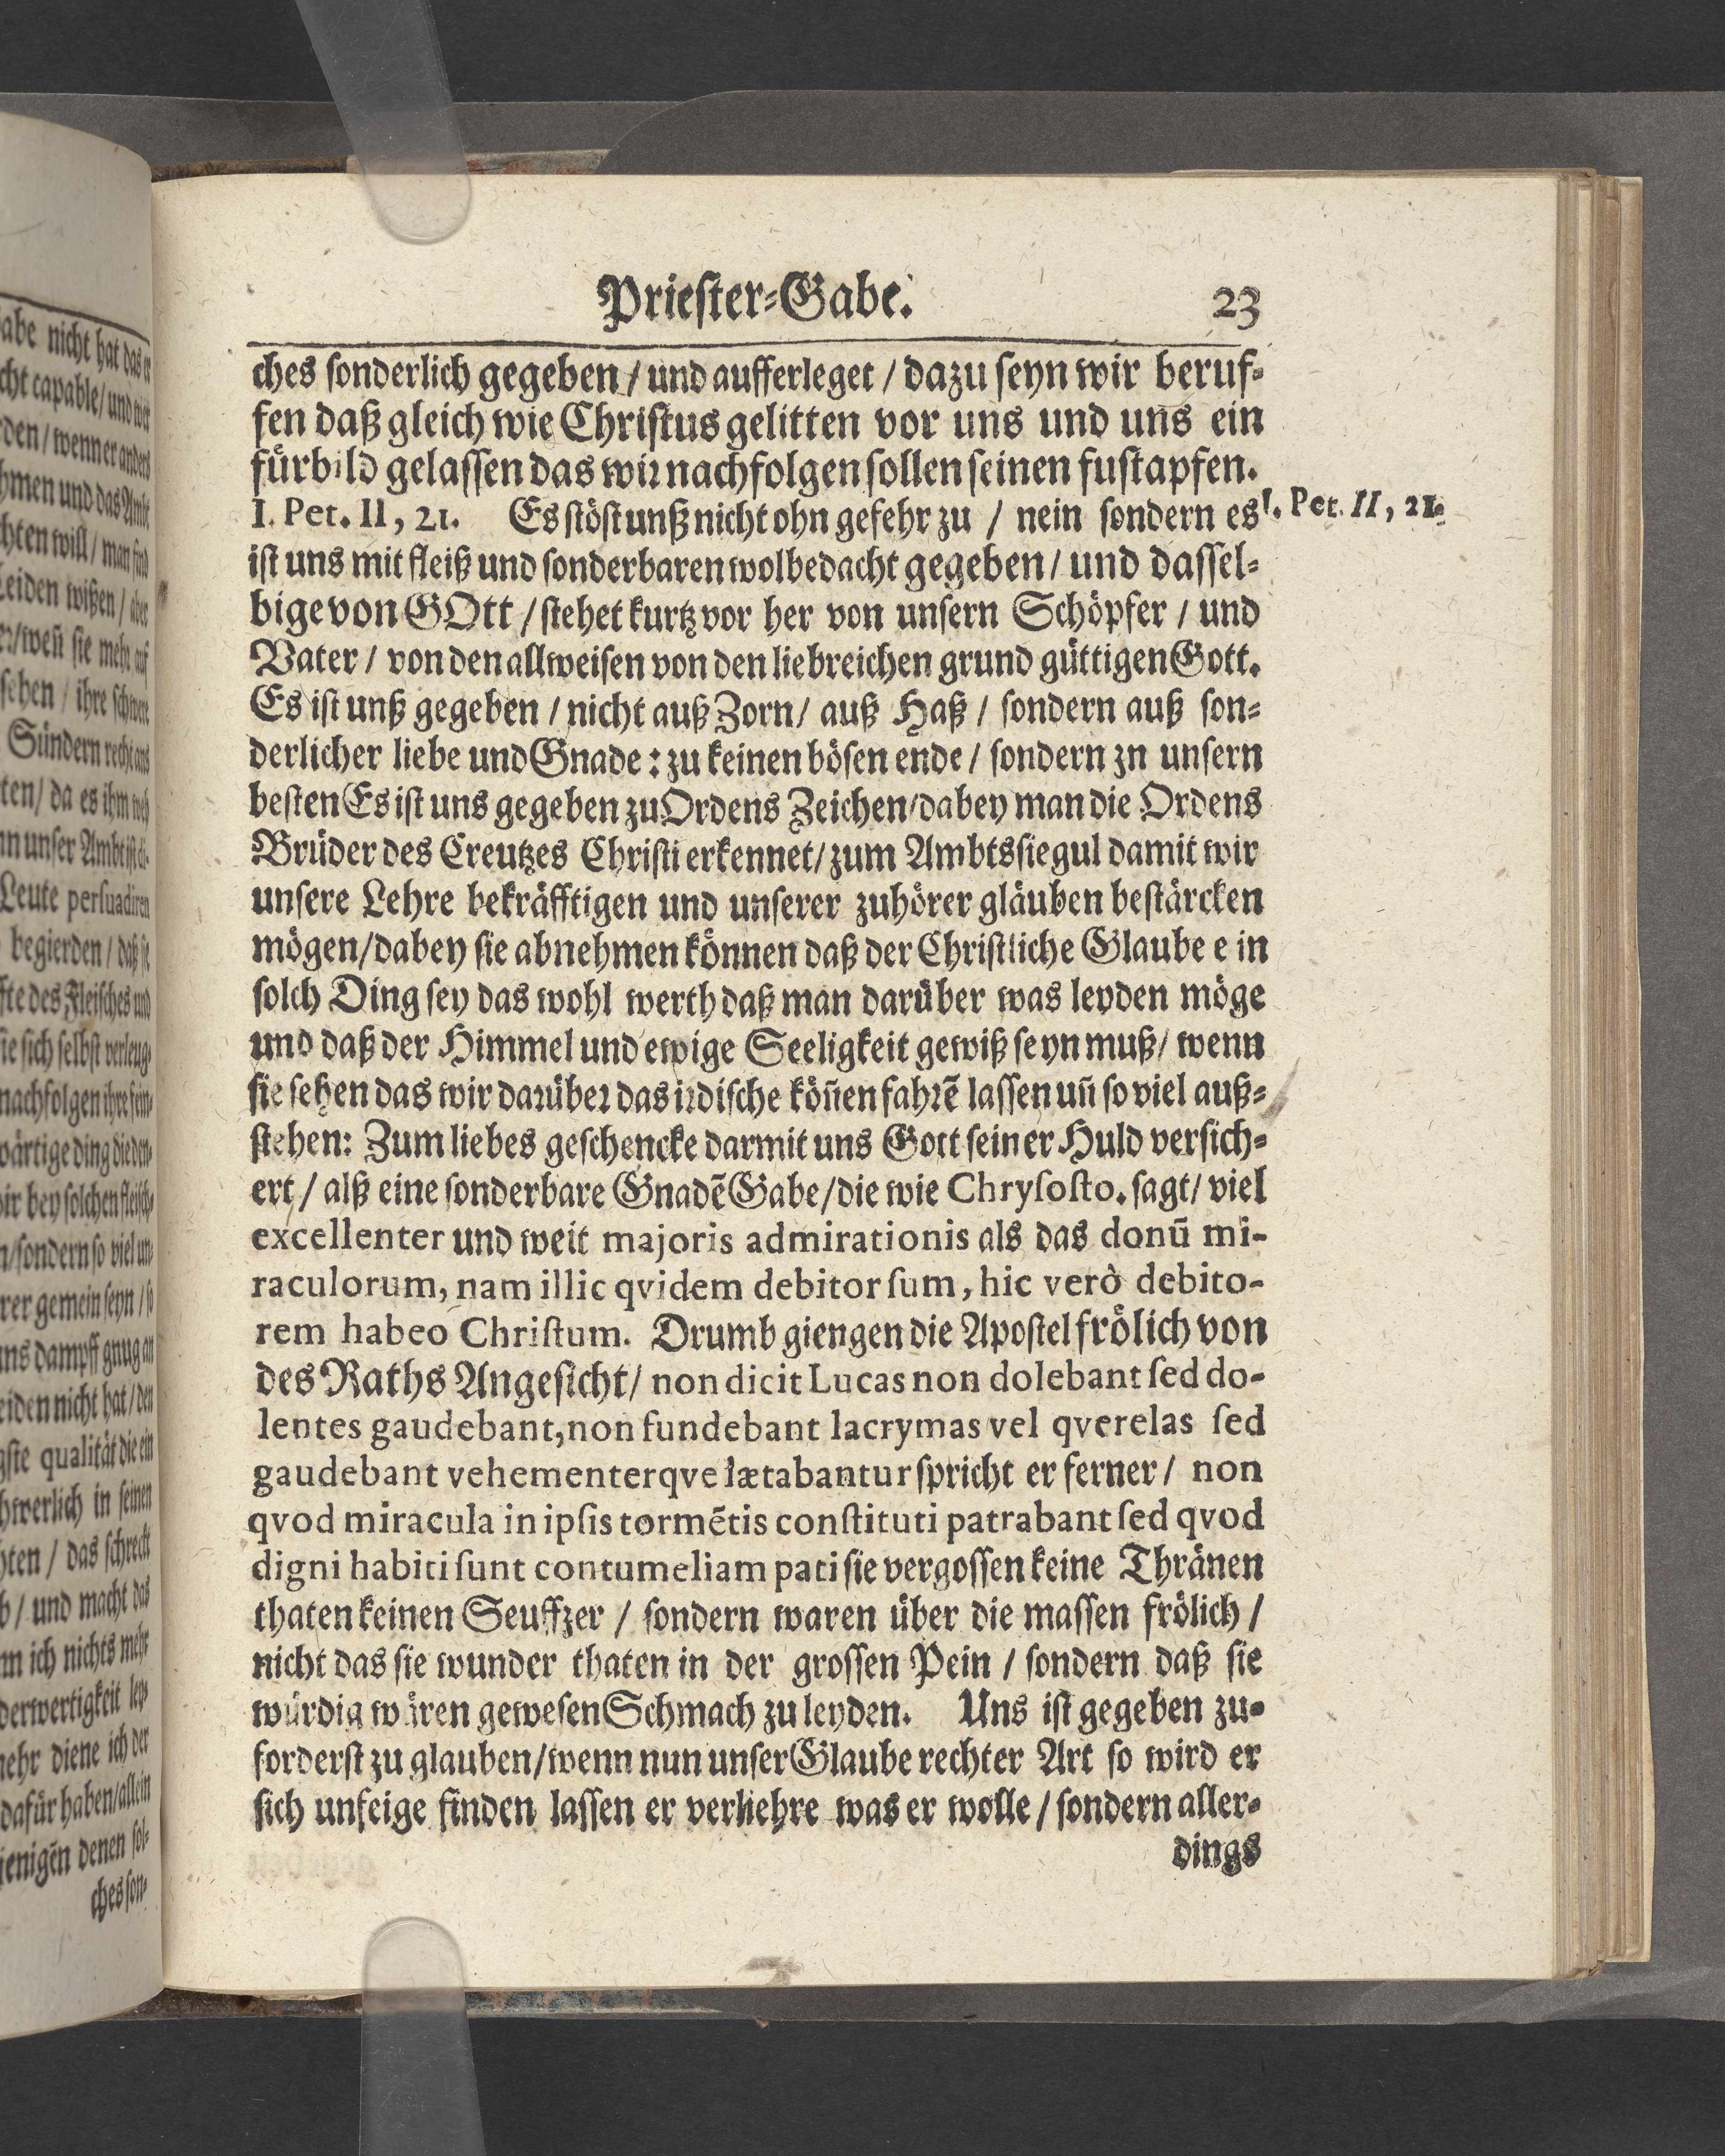 Priester-Gabe. 23
ches sonderlich gegeben / und aufferleget / dazu seyn wir beruf-
fen daß gleich wie Christus gelitten vor uns und uns ein
fürbild gelassen das wir nachfolgen sollen seinen fustapfen.
I. Pet. II, 21. Es stöst unß nicht ohn gefehr zu / nein sondern es
I. Pet. II, 21.
ist uns mit fleiß und sonderbaren wolbedacht gegeben / und dassel-
bige von GOtt / stehet kurtz vor her von unsern Schöpfer / und
Vater / von den allweisen von den liebreichen grund güttigen Gott.
Es ist unß gegeben / nicht auß Zorn / auß Haß / sondern auß son-
derlicher liebe und Gnade: zu keinen bösen ende / sondern zn unsern
besten Es ist uns gegeben zu Ordens Zeichen / dabey man die Ordens
Brüder des Creutzes Christi erkennet / zum Ambtssiegul damit wir
unsere Lehre bekräfftigen und unserer zuhörer gläuben bestärcken
mögen / dabey sie abnehmen können daß der Christliche Glaube e in
solch Ding sey das wohl werth daß man darüber was leyden möge
und daß der Himmel und ewige Seeligkeit gewiß seyn muß / wenn
sie sehen das wir darüber das irdische kön̄en fahrē lassen un̄ so viel auß-
stehen: Zum liebes geschencke darmit uns Gott seiner Huld versich-
ert / alß eine sonderbare Gnadē Gabe / die wie Chrysosto. sagt / viel
excellenter und weit majoris admirationis als das donū mi-
raculorum, nam illic qvidem debitor sum, hic verò debito-
rem habeo Christum. Drumb giengen die Apostel frölich von
des Raths Angesicht / non dicit Lucas non dolebant sed do-
lentes gaudebant, non fundebant lacrymas vel qverelas sed
gaudebant vehementerqve lætabantur spricht er ferner / non
qvod miracula in ipsis tormētis constituti patrabant sed qvod
digni habiti sunt contumeliam pati sie vergossen keine Thränen
thaten keinen Seuffzer / sondern waren über die massen frölich /
nicht das sie wunder thaten in der grossen Pein / sondern daß sie
würdig wären gewesen Schmach zu leyden. Uns ist gegeben zu-
forderst zu glauben / wenn nun unser Glaube rechter Art so wird er
sich unfeige finden lassen er verliehre was er wolle / sondern aller-
dings